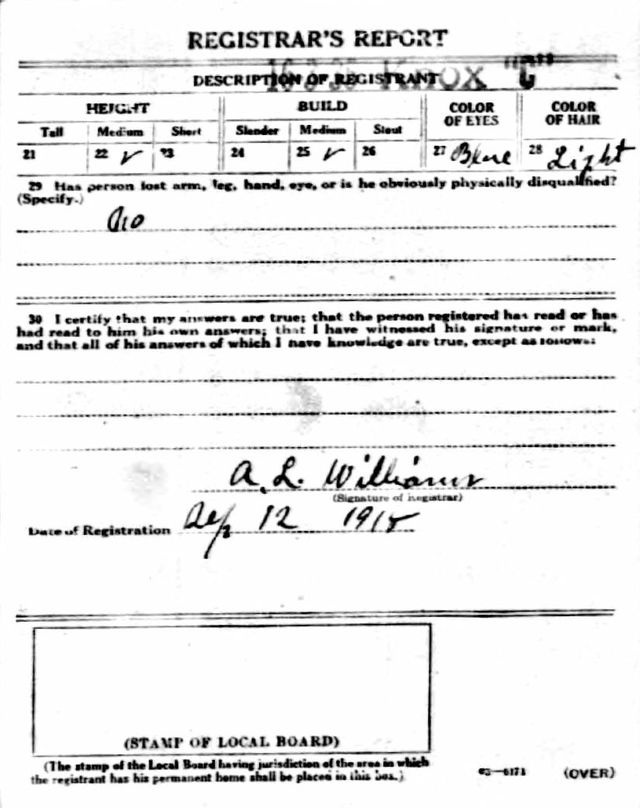 REGISTRAR'S REPORT
16-2-35 KNOX "C"
DESCRIPTION OF REGISTRANT
HEIGHT BUILD COLOR OF EYES COLOR OF HAIR
Tall Medium Short Slender Medium Stout
21 22 ✓ 23 24 25 ✓ 26 27 Blue 28 Light
29 Has person lost arm, leg, hand, eye, or is he obviously physically disqualified?
(Specify.)
No
30 I certify that my answers are true; that the person registered has read or has
had read to him his own answers; that I have witnessed his signature or mark,
and that all of his answers of which I have knowledge are true, except as follows:
A. L. Williams
(Signature of Registrar)
Date of Registration Sep 12 1918
(STAMP OF LOCAL BOARD)
(The stamp of the Local Board having jurisdiction of the area in which
the registrant has his permanent home shall be placed in this box.)
03—6171 (OVER)